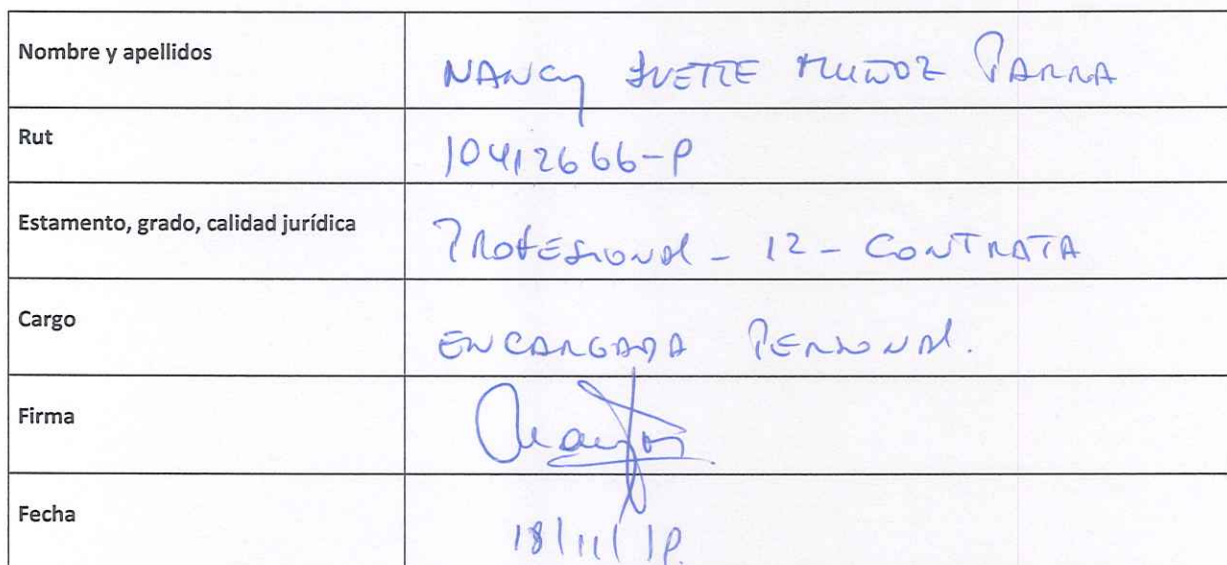 Nombre y apellidos
NANCY IVETTE MUÑOZ PARRA
Rut
10412666-9
Estamento, grado, calidad jurídica
PROFESIONAL - 12 - CONTRATA
Cargo
ENCARGADA PERSONAL.
Firma
Fecha
18/11/19.